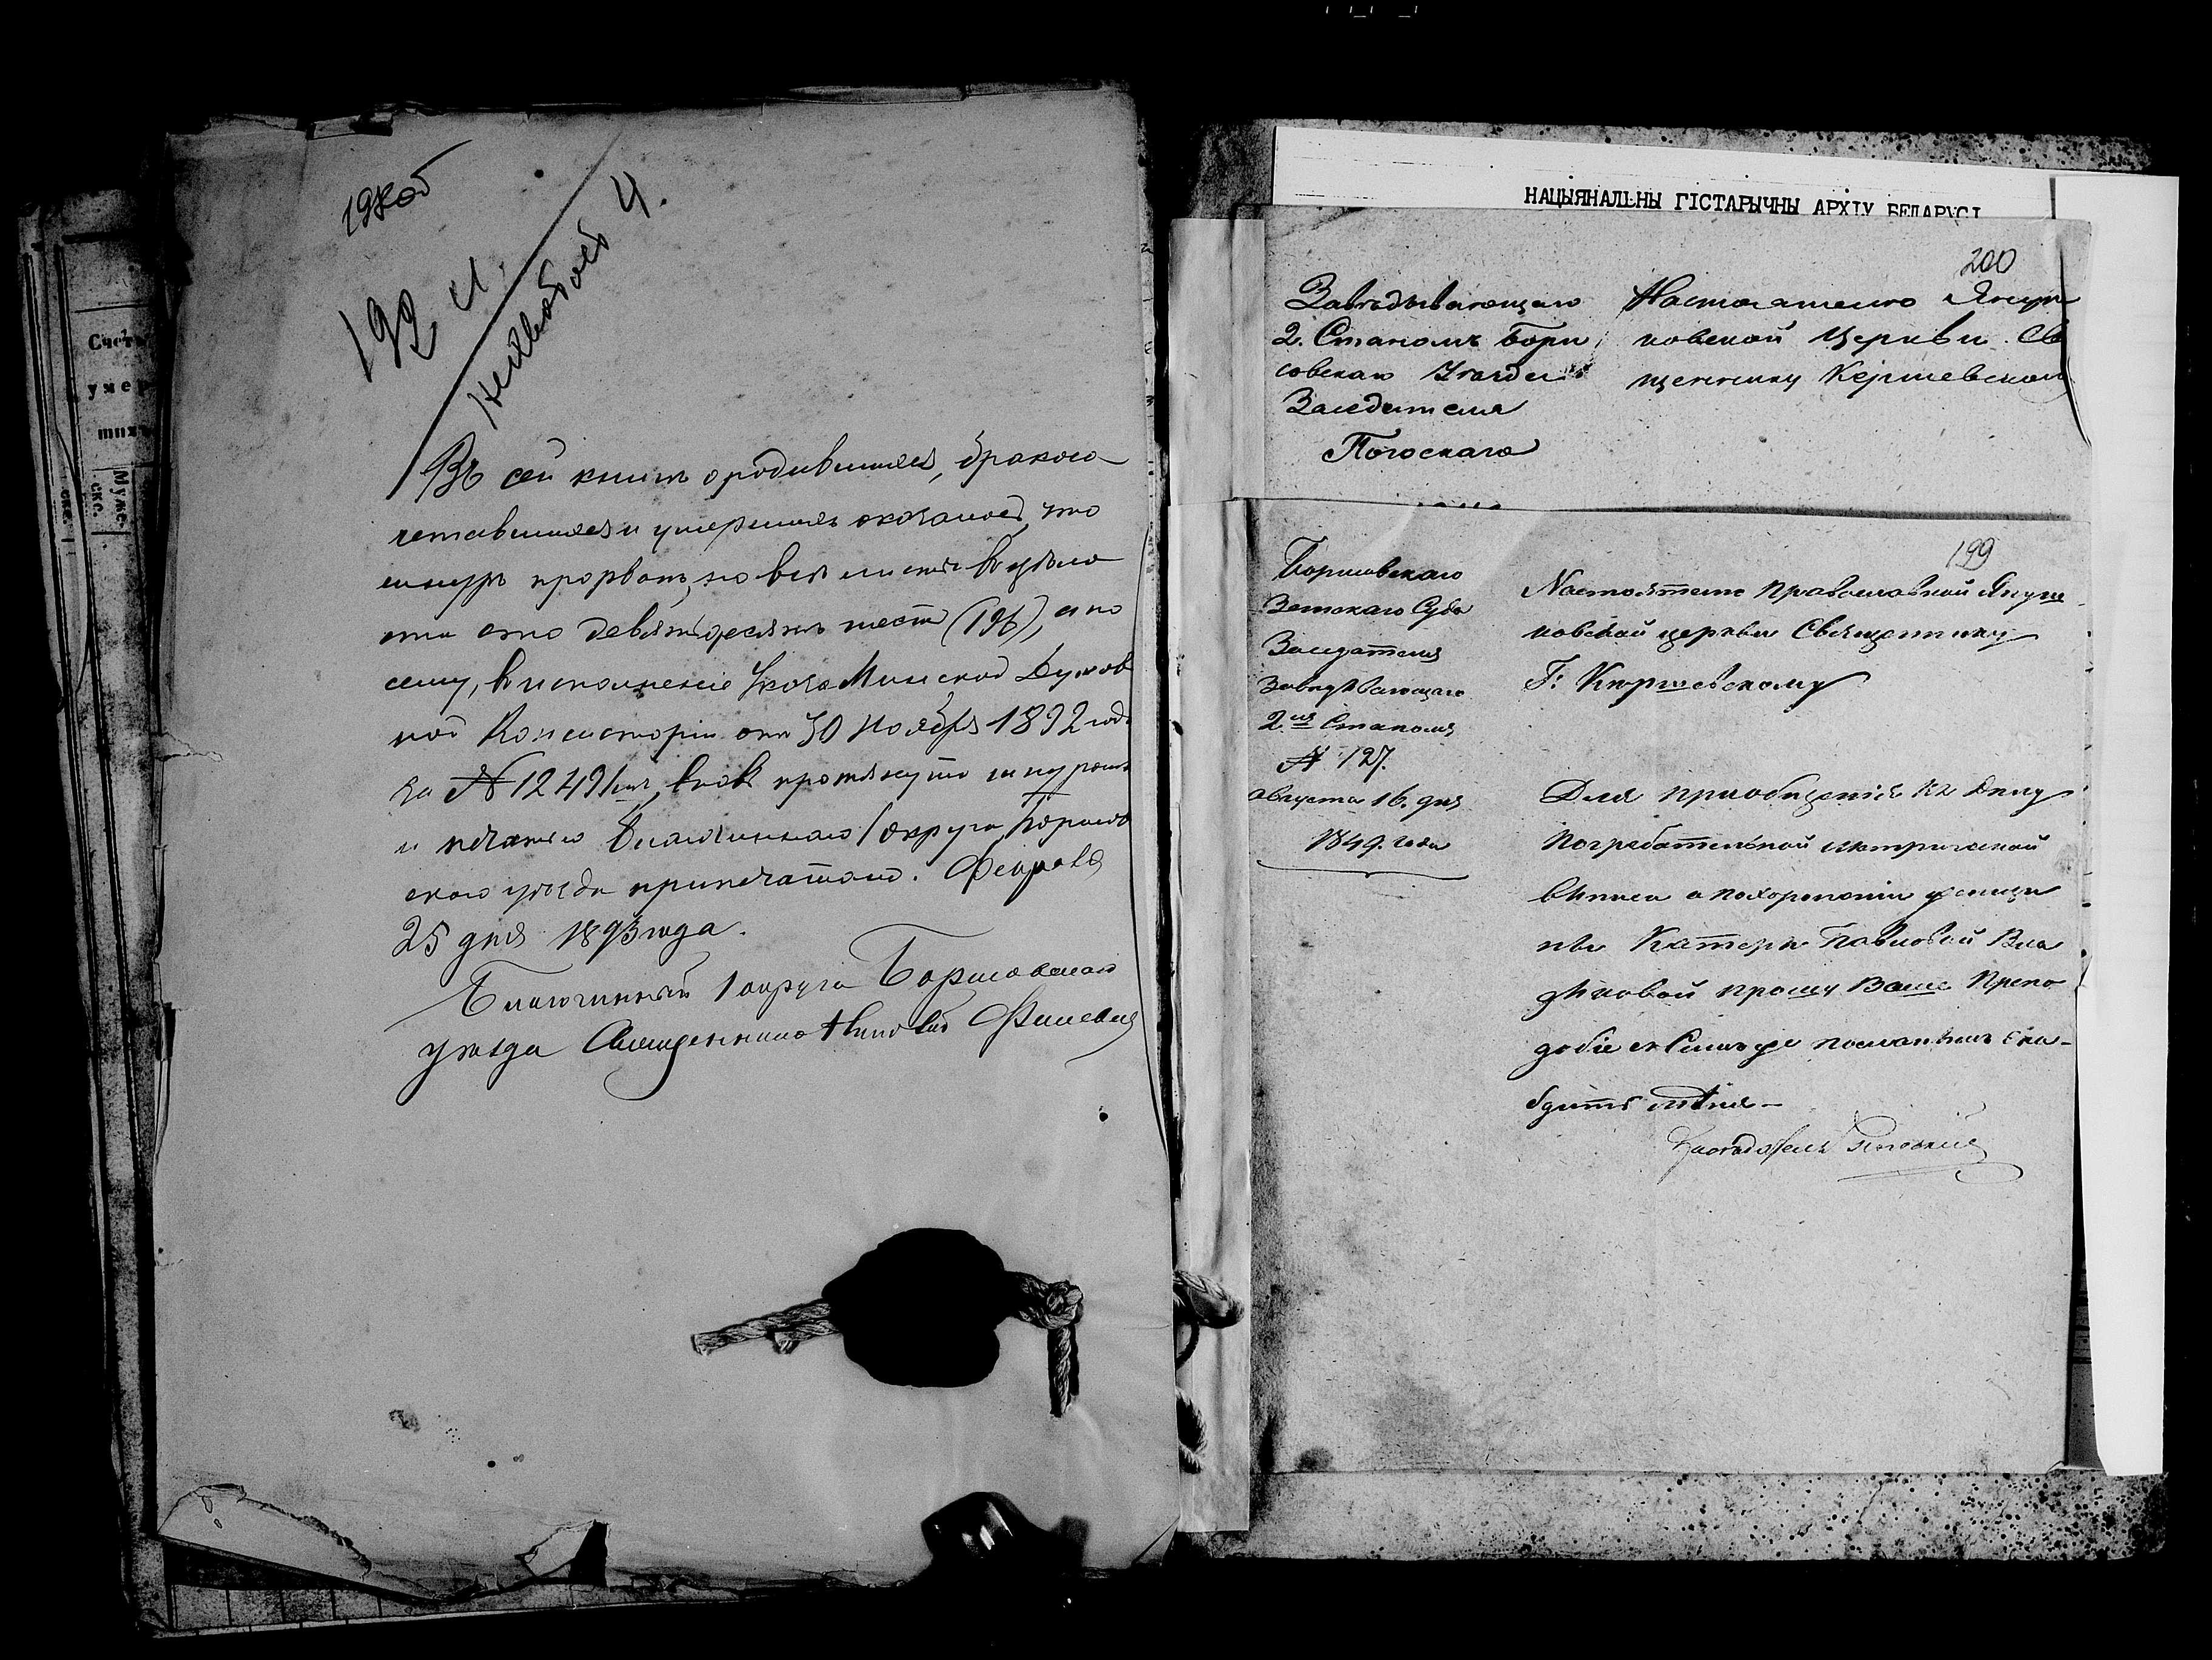 Счетъ
умер
шихъ
Муже-
ске.
198об
192 л.
4.
Въ сей книгѣ о родившихся, бракосо-
четавшихся и умершихъ оказалось, что
шнуръ прорванъ, но всѣ листы въ цѣло
сти сто девяносто шесть (196), а по
сему, во исполненіе Указа Минской Духов
ной Консисторіи отъ 30 Ноября 1892 года
за № 12491, вновь протянутъ шнуромъ
и печатью Благочиннаго 1 округа Борисов
скаго уѣзда припечатано. Февраля
25 дня 1893 года.
Благочинный 1 округа Борисовскаго
уѣзда Священникъ Филевичъ
НАЦЫЯНАЛЬНЫ ГІСТАРЫЧНЫ АРХІУ БЕЛАРУСІ
200
Завѣдывающаго
2. Станомъ Бори
совскаго Уѣзда
Засѣдателя
Погоскаго
Настоятелю Януш
ковской Церкви Свя
щеннику Кершевском
199
Борисовскаго
Земскаго Суда
Засѣдателя
Завѣдывающаго
2мъ Станомъ
№ 127.
августа 16. дня
1849. года
Настоятелю Православной Януш
ковской церкви Священнику
Г: Кершевскому
Для пріобщенія къ дѣлу
погребательной метрической
выписи о похороненіи
ны Катери Павловой Вла
дыковой прошу Ваше Препо
добіе съ симъ же посланнымъ сна-
бдить меня –
Засѣдатель Погоскій